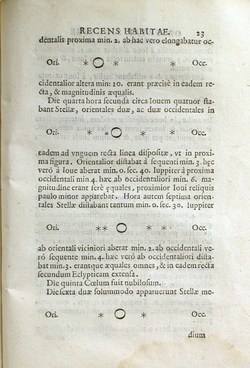 RECENS HABITAE. 23
dentalis proxima min. 2. ab hac vero elongabatur oc-
Ori. * O * * Occ.
cidentalior altera min: 10. erant præcisè in eadem re-
cta, & magnitudinis æqualis.
Die quarta hora secunda circa Iouem quatuor sta-
bant Stellæ, orientales duæ, ac duæ occidentales in
Ori. * * O * * Occ.
eadem ad vnguem recta linea dispositæ, vt in proxi-
ma figura. Orientalior distabat à sequenti min. 3. hæc
verò à Ioue aberat min. 0. sec. 40. Iuppiter à proxima
occidentali min. 4. hæc ab occidentaliori min. 6. ma-
gnitudine erant ferè equales, proximior Ioui reliquis
paulo minor apparebat. Hora autem septima orien-
tales Stellæ distabant tantum min. 0. sec. 30. Iuppiter
Ori. ** O * * Occ.
ab orientali viciniori aberat min. 2. ab occidentali ve-
rò sequente min. 4. hæc verò ab occidentaliori dista-
bat min. 3. erantque æquales omnes, & in eadem recta
secundum Eclypticam extensa.
Die quinta Cœlum fuit nubilosum.
Die sexta duæ solummodo apparuerunt Stellæ me-
Ori. * O * Occ.
dium